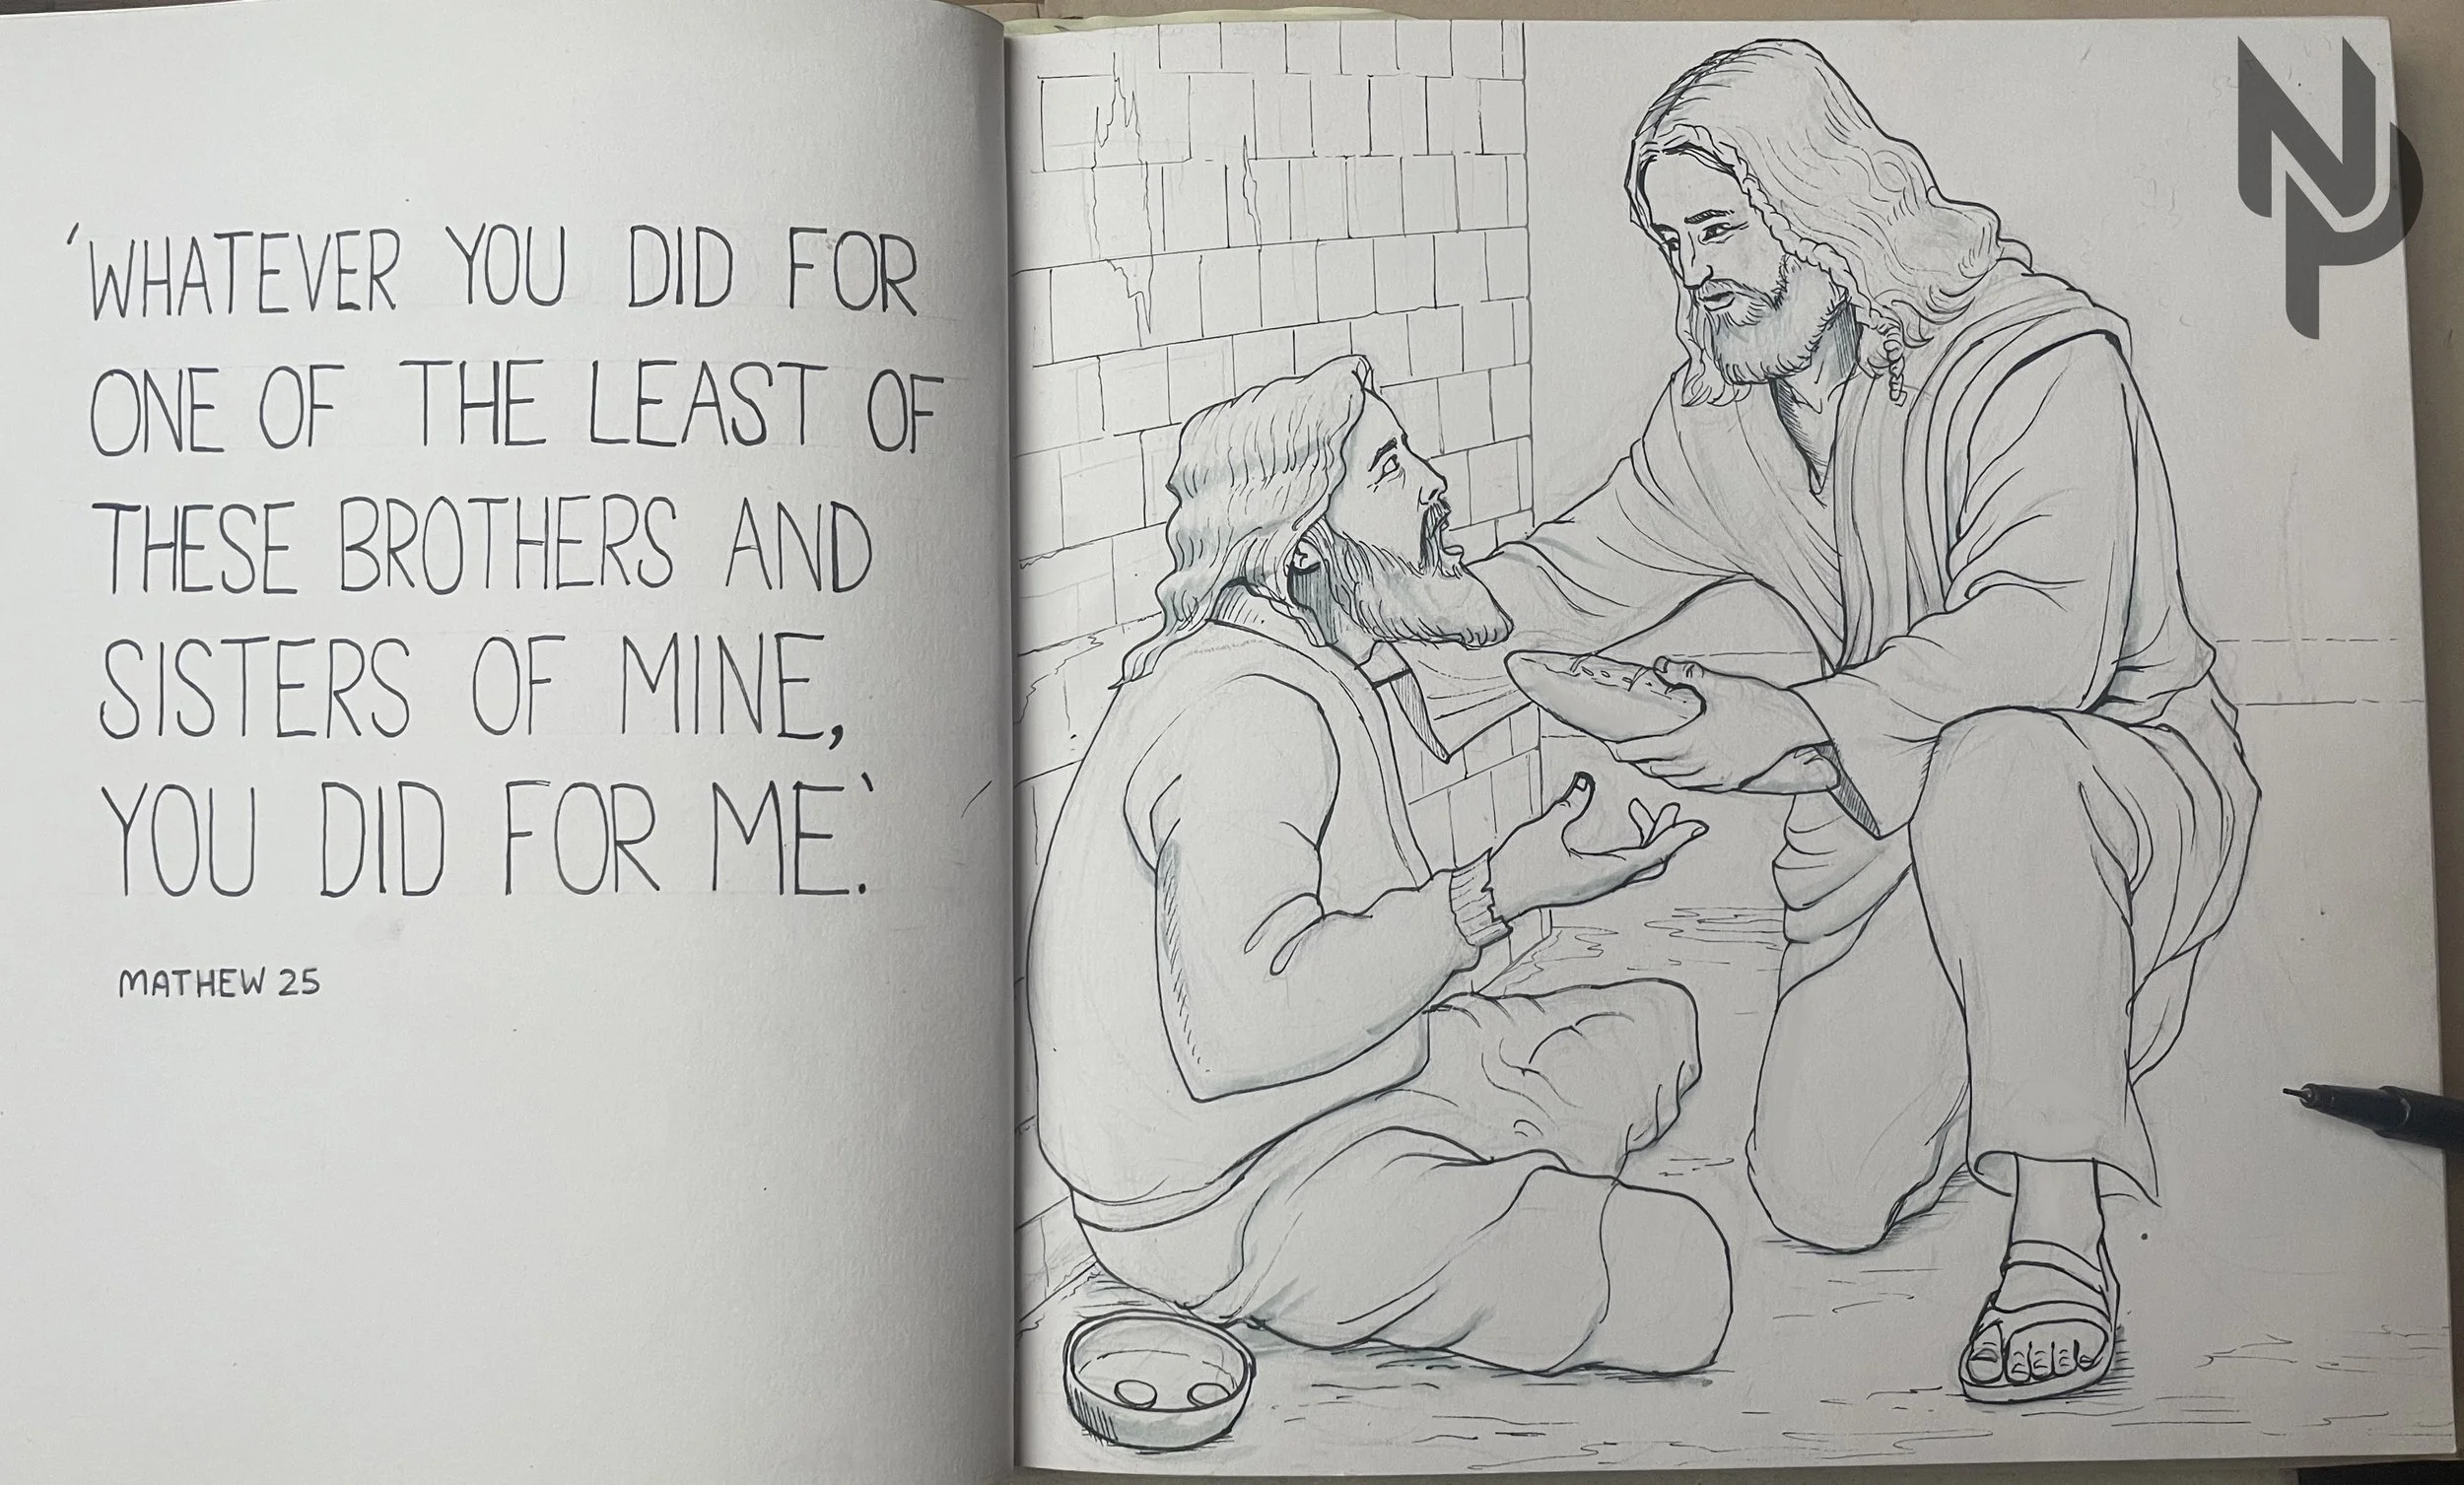 'WHATEVER YOU DID FOR
ONE OF THE LEAST OF
THESE BROTHERS AND
SISTERS OF MINE,
YOU DID FOR ME.'
MATHEW 25
NP